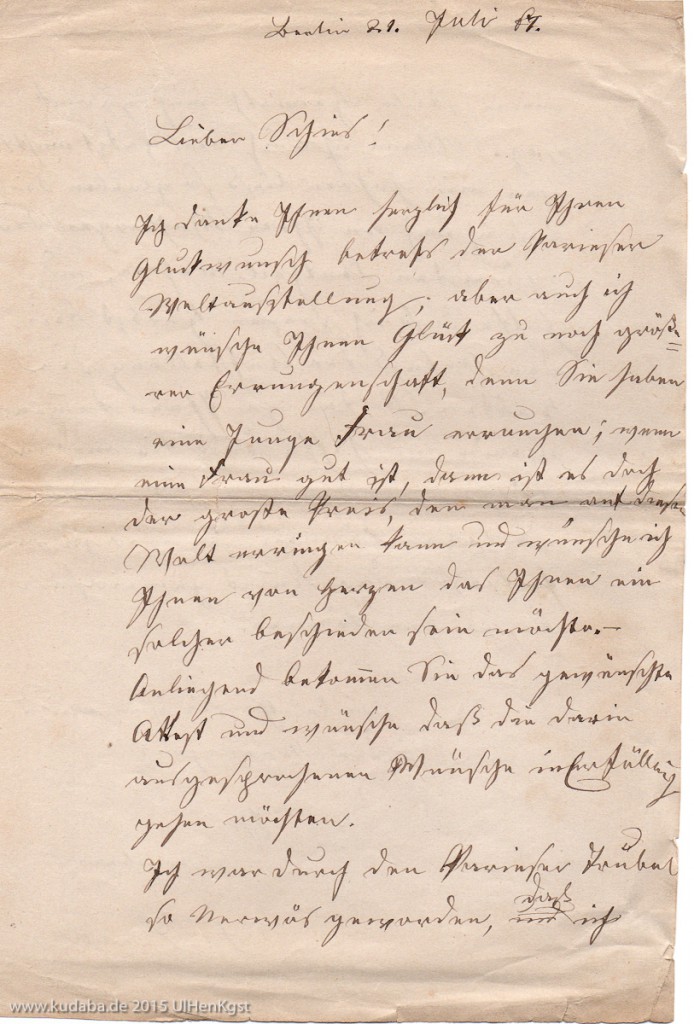 Berlin 21. Juli 67.
Lieber Schies!
Ich danke Ihnen herzlich für Ihren
Gluckwunsch betreffs der Parieser
Weltausstellung; aber auch ich
wünsche Ihnen Glück zu noch größe=
rer Errungenschaft, denn Sie haben
eine Junge Frau errungen; wenn
eine Frau gut ist, dann ist es doch
der große Preis, den man auf dieser
Welt erringen kann und wünsche ich
Ihnen von Herzen das Ihnen ein
solcher beschieden sein möchte.–
Anliegend bekommen Sie das gewünschte
Attest und wünsche daß die darin
ausgesprochenen Wünsche in Erfüllung
gehen möchten.
Ich war durch den Parieser Trubel
so Nervös geworden, daß ich
www.kudaba.de 2015 UlHenKgst